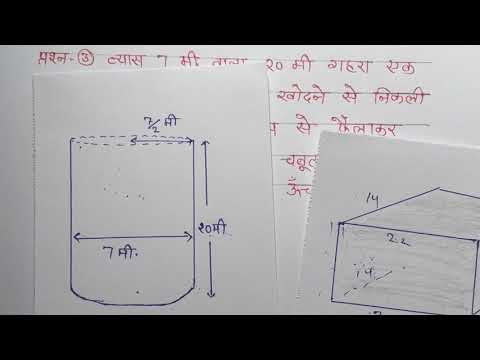 प्रश्न-③ व्यास 7 मी वाला २० मी गहरा एक
खोदने से निकली
से फैलाकर
7/2 मी
२०मी
7 मी.
14
22
14